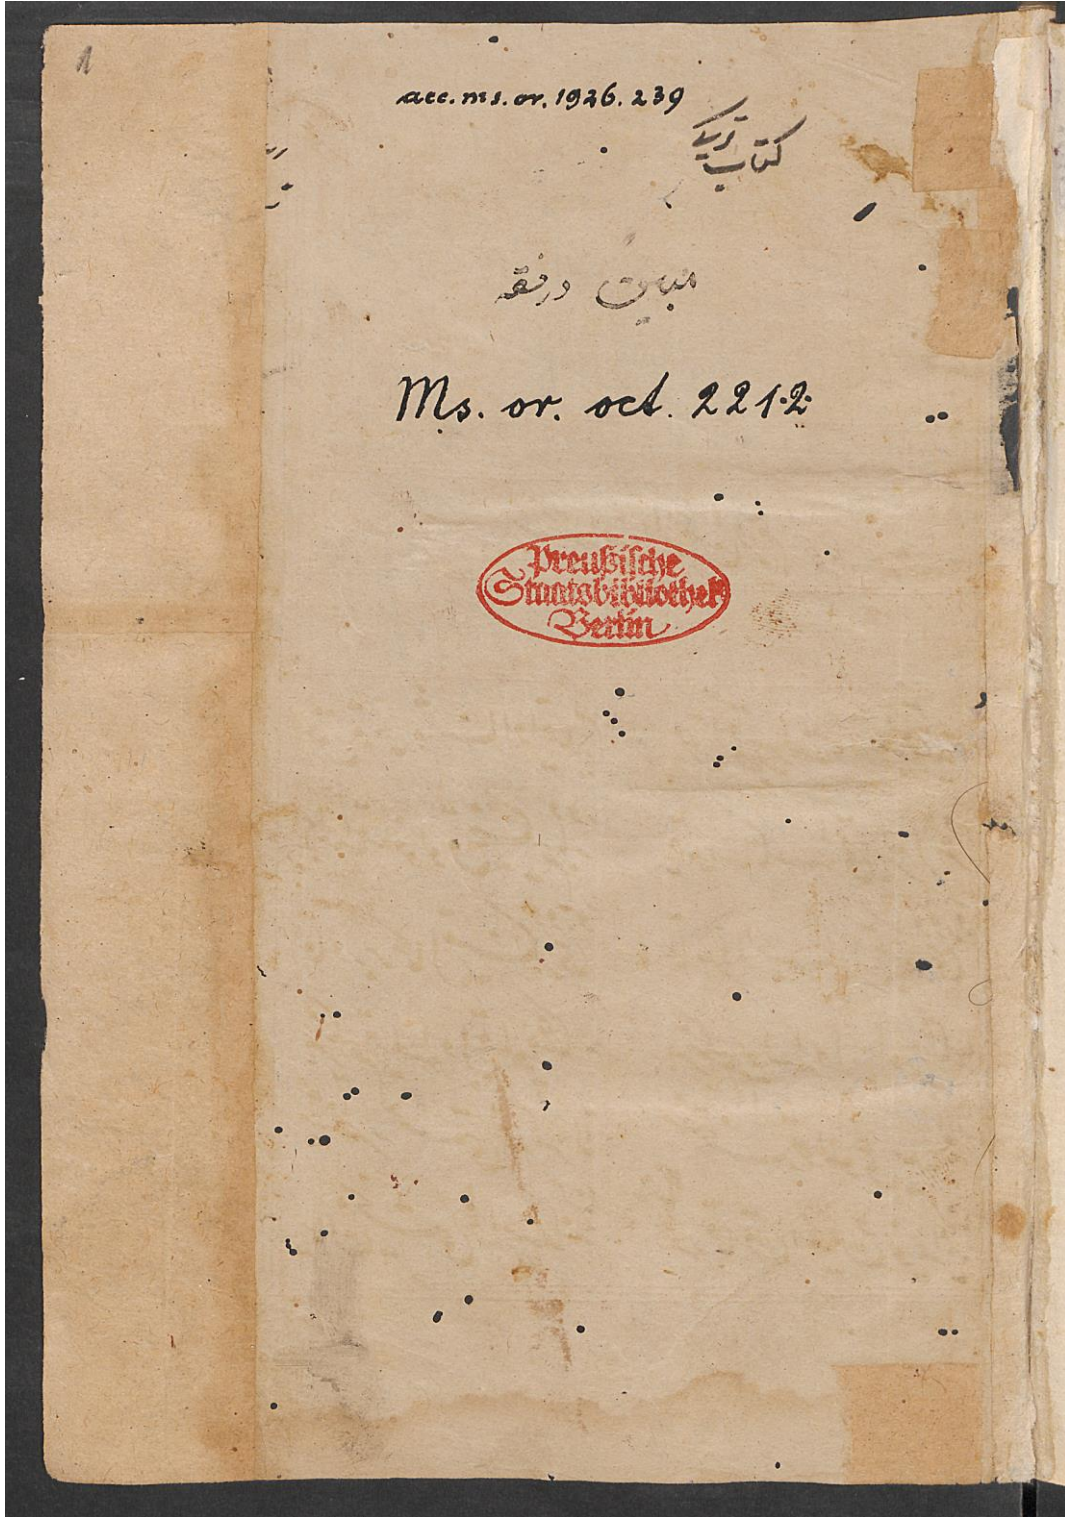 1
acc. ms. or. 1926. 239
کتاب
در فقه
Ms. or. oct. 2212
Preußische
Staatsbibliothek
Berlin